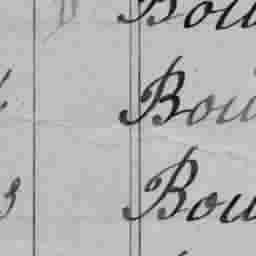 Bou
Bou
3 Bou